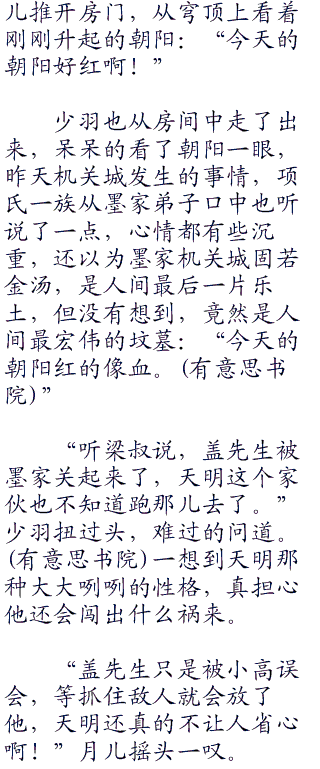 儿推开房门，从穹顶上看着
刚刚升起的朝阳：“今天的
朝阳好红啊！”
少羽也从房间中走了出
来，呆呆的看了朝阳一眼，
昨天机关城发生的事情，项
氏一族从墨家弟子口中也听
说了一点，心情都有些沉
重，还以为墨家机关城固若
金汤，是人间最后一片乐
土，但没有想到，竟然是人
间最宏伟的坟墓：“今天的
朝阳红的像血。(有意思书
院)”
“听梁叔说，盖先生被
墨家关起来了，天明这个家
伙也不知道跑那儿去了。”
少羽扭过头，难过的问道。
(有意思书院)一想到天明那
种大大咧咧的性格，真担心
他还会闯出什么祸来。
“盖先生只是被小高误
会，等抓住敌人就会放了
他，天明还真的不让人省心
啊！”月儿摇头一叹。